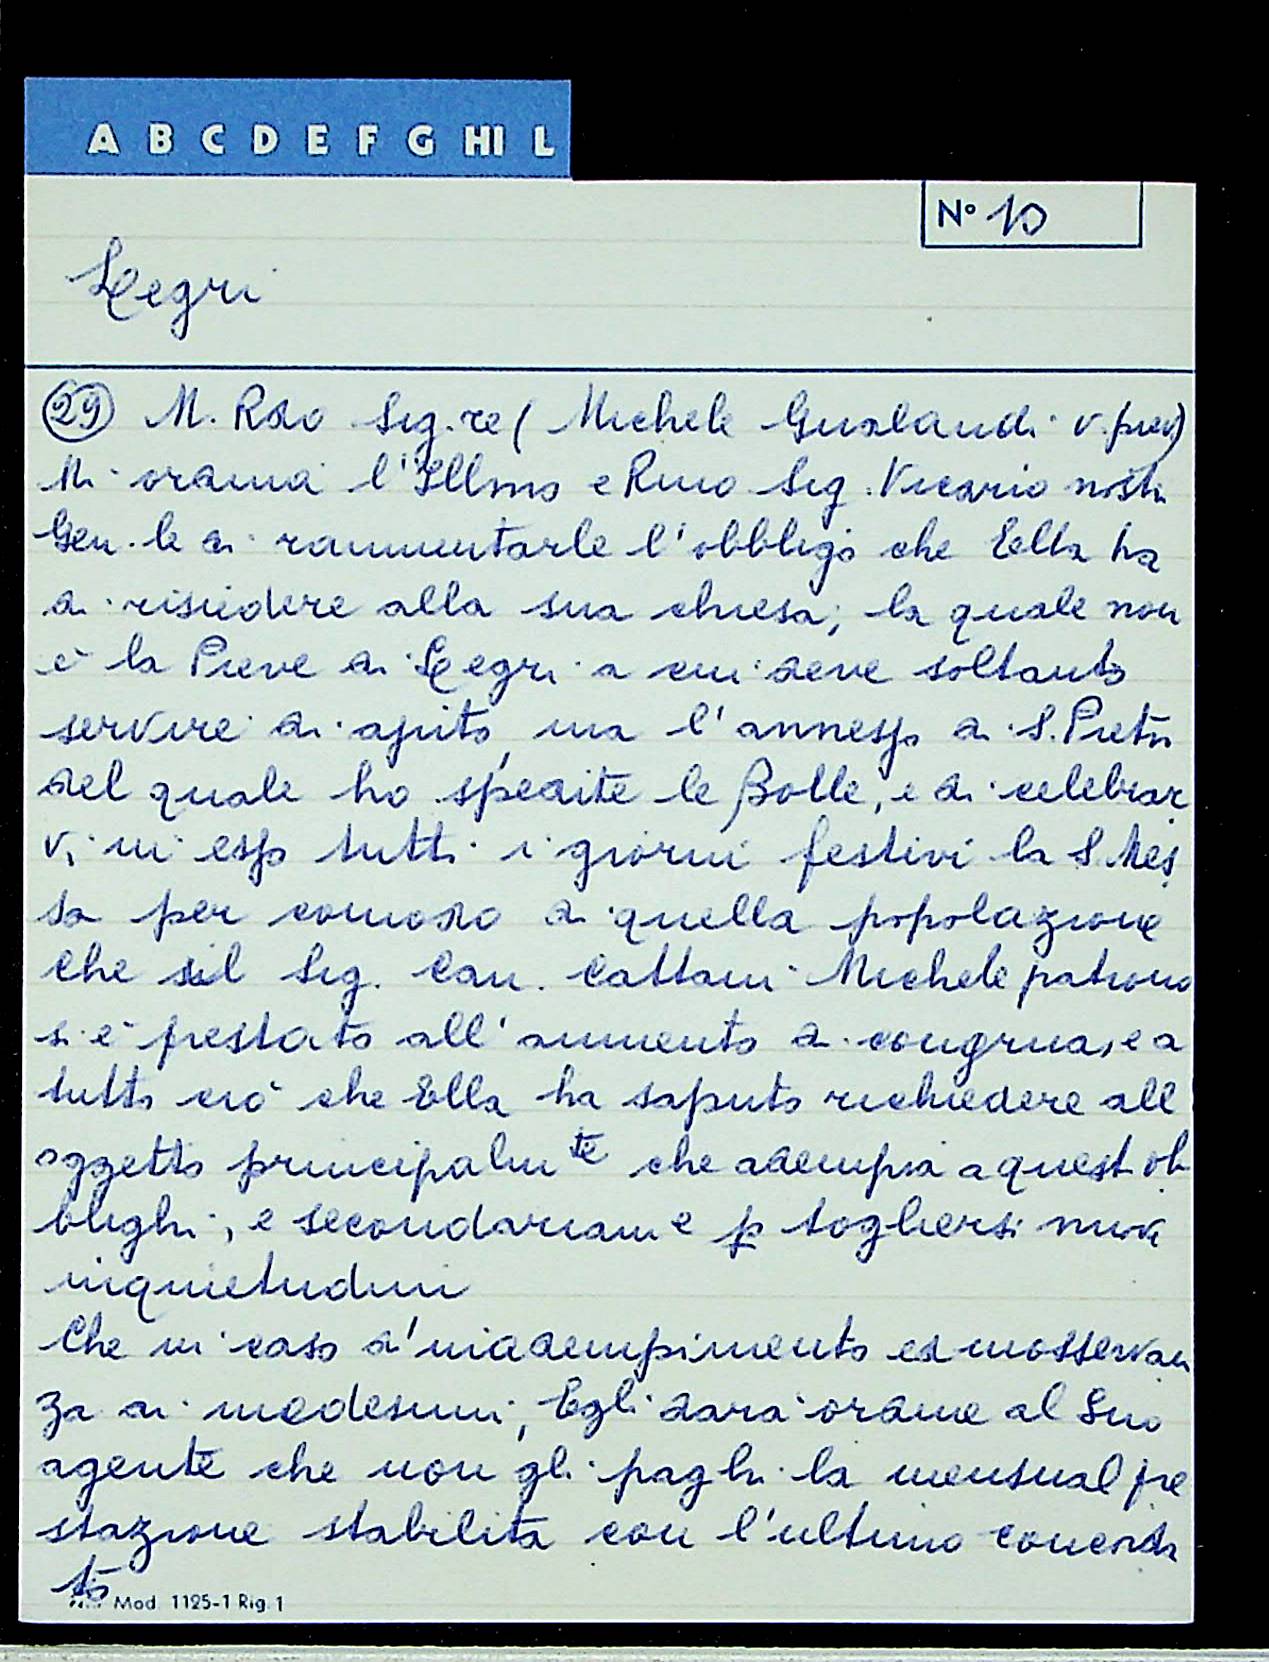 A B C D E F G HI L
N° 10
Legri
29 M. Rdo Sig.re ( Michele Gualandi v. piev)
Mi ordina l'Illmo e Rmo Sig. Vicario nostro
Gen.le di rammentarle l'obbligo che Ella ha
di risiedere alla sua chiesa, la quale non
è la Pieve di Legri a cui deve soltanto
servire di ajuto, ma l'annesso di S. Pietro
del quale ho spedite le Bolle, e di celebrar
vi in esso tutti i giorni festivi la S. Mes
sa per comodo di quella popolazione
che il Sig. Can. Cattani Michele patrono
si è prestato all'aumento di congrua, e a
tutto ciò che Ella ha saputo richiedere all
oggetto principalmte che adempia a quest ob
blighi, e secondariame p togliersi nuove
inquietudini
Che in caso d'inadempimento ed inosservan
za di medesimi, Egli darà ordine al Suo
agente che non gli paghi la mensual pre
stazione stabilita con l'ultimo concorda
to
Mod. 1125-1 Rig. 1